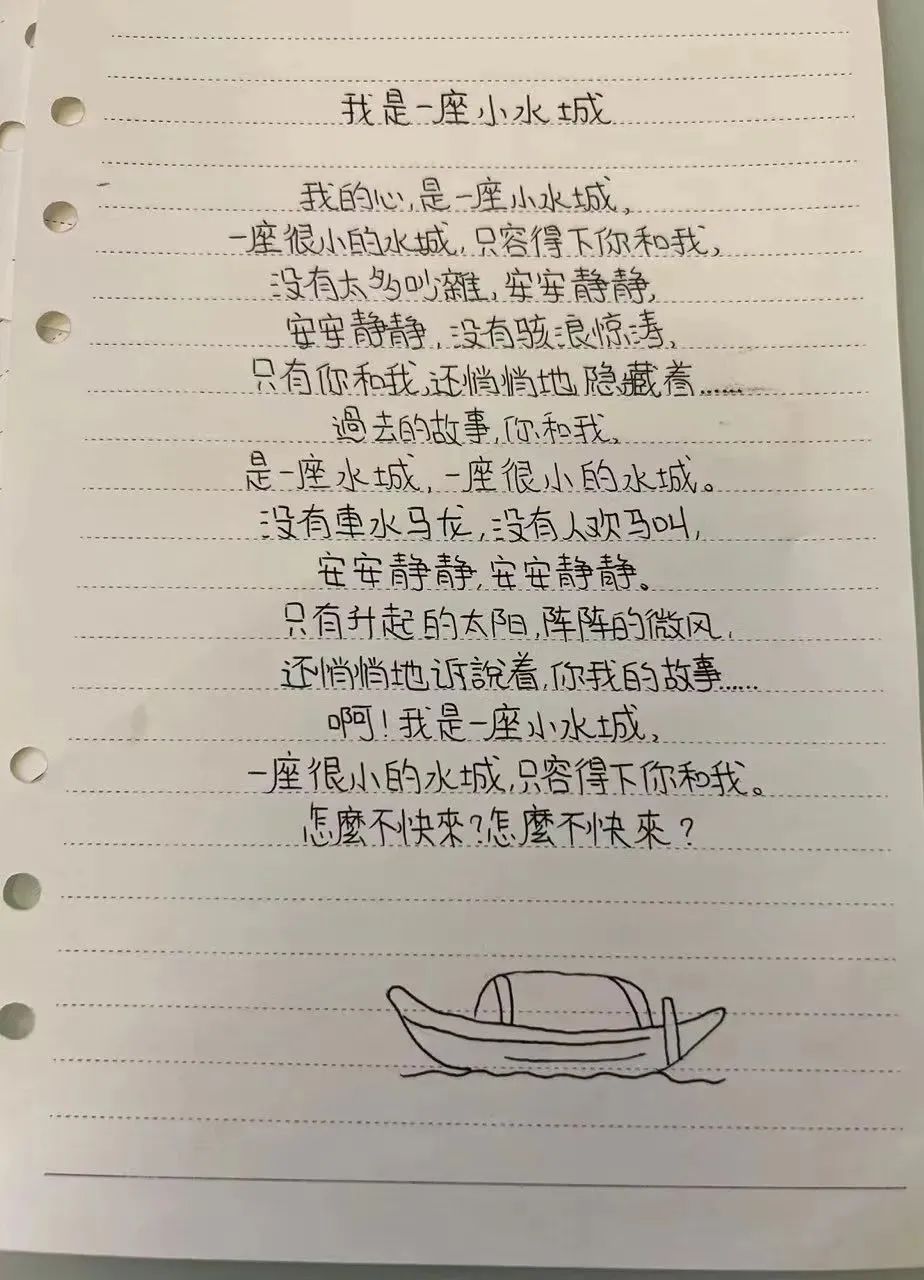 我是一座小水城
我的心,是一座小水城,
一座很小的水城,只容得下你和我,
没有太多吵雜,安安静静,
安安静静,没有骇浪惊涛,
只有你和我,还悄悄地隐藏着……
過去的故事,你和我,
是一座水城,一座很小的水城。
没有車水马龙,没有人欢马叫,
安安静静,安安静静。
只有升起的太阳,阵阵的微风,
还悄悄地诉説着,你我的故事……
啊!我是一座小水城,
一座很小的水城,只容得下你和我。
怎麼不快來?怎麼不快來?